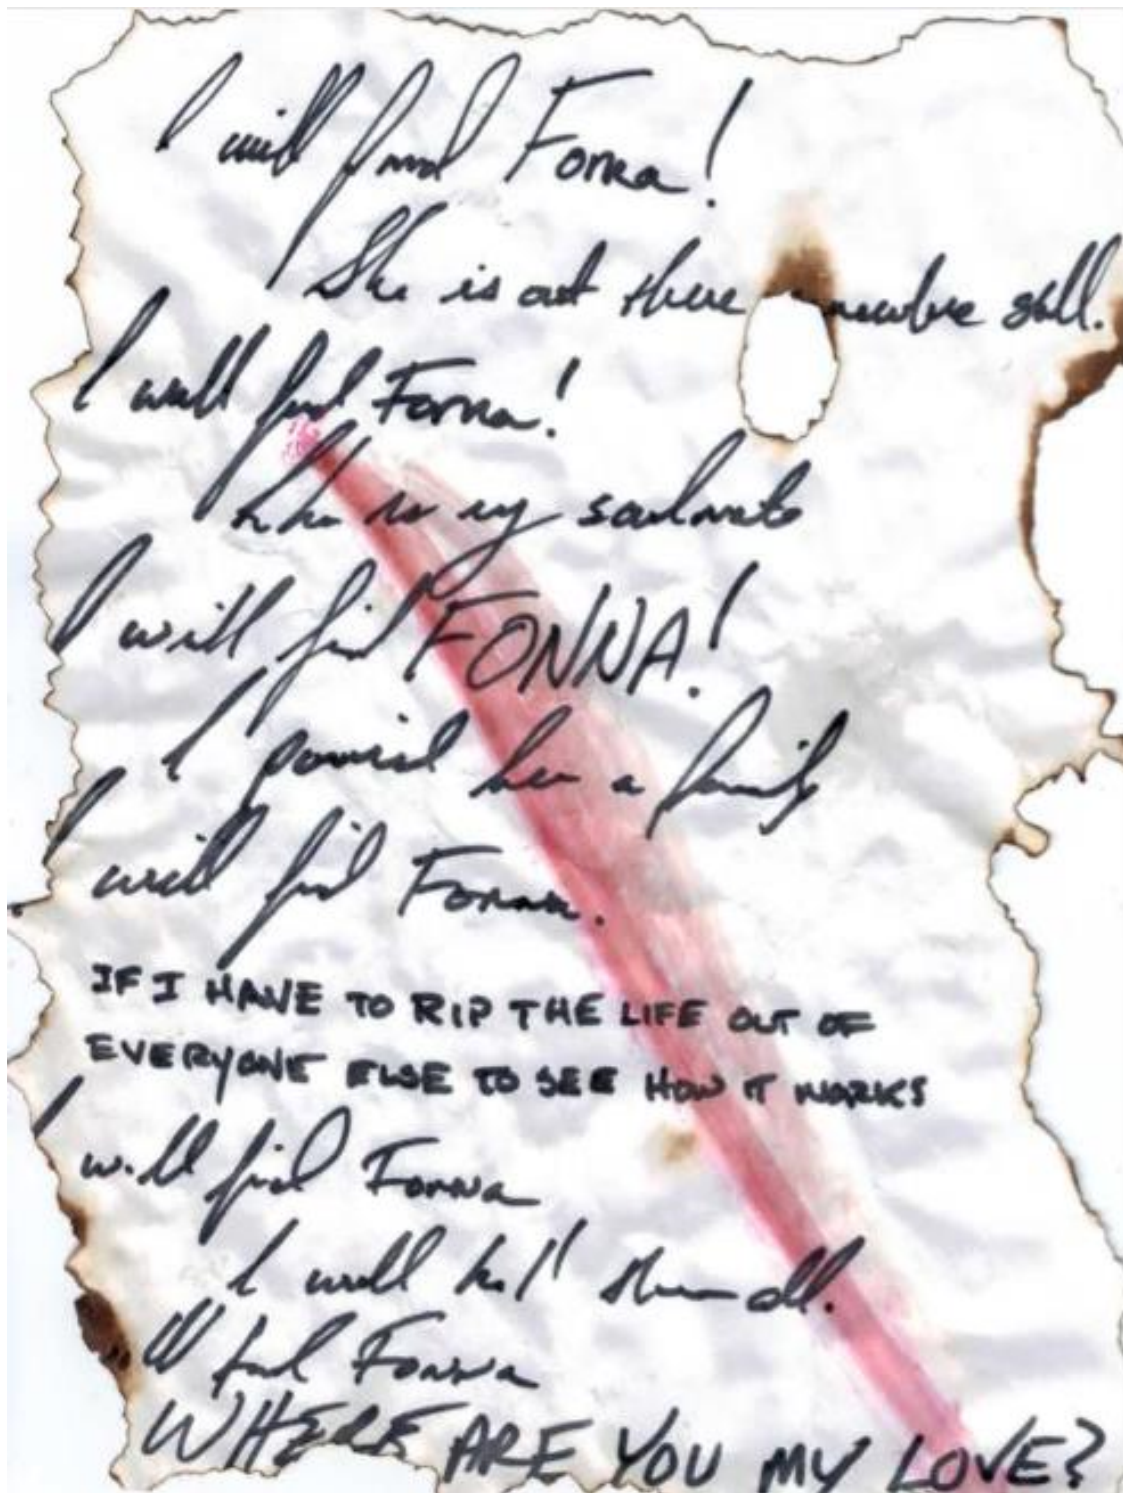 I will find Fonna!
She is out there somewhere still.
I will find Fonna!
She is my soulmate
I will find FONNA!
I promised her a family
I will find Fonna.
IF I HAVE TO RIP THE LIFE OUT OF
EVERYONE ELSE TO SEE HOW IT WORKS
I will find Fonna
I will kill them all.
I'll find Fonna
WHERE ARE YOU MY LOVE?